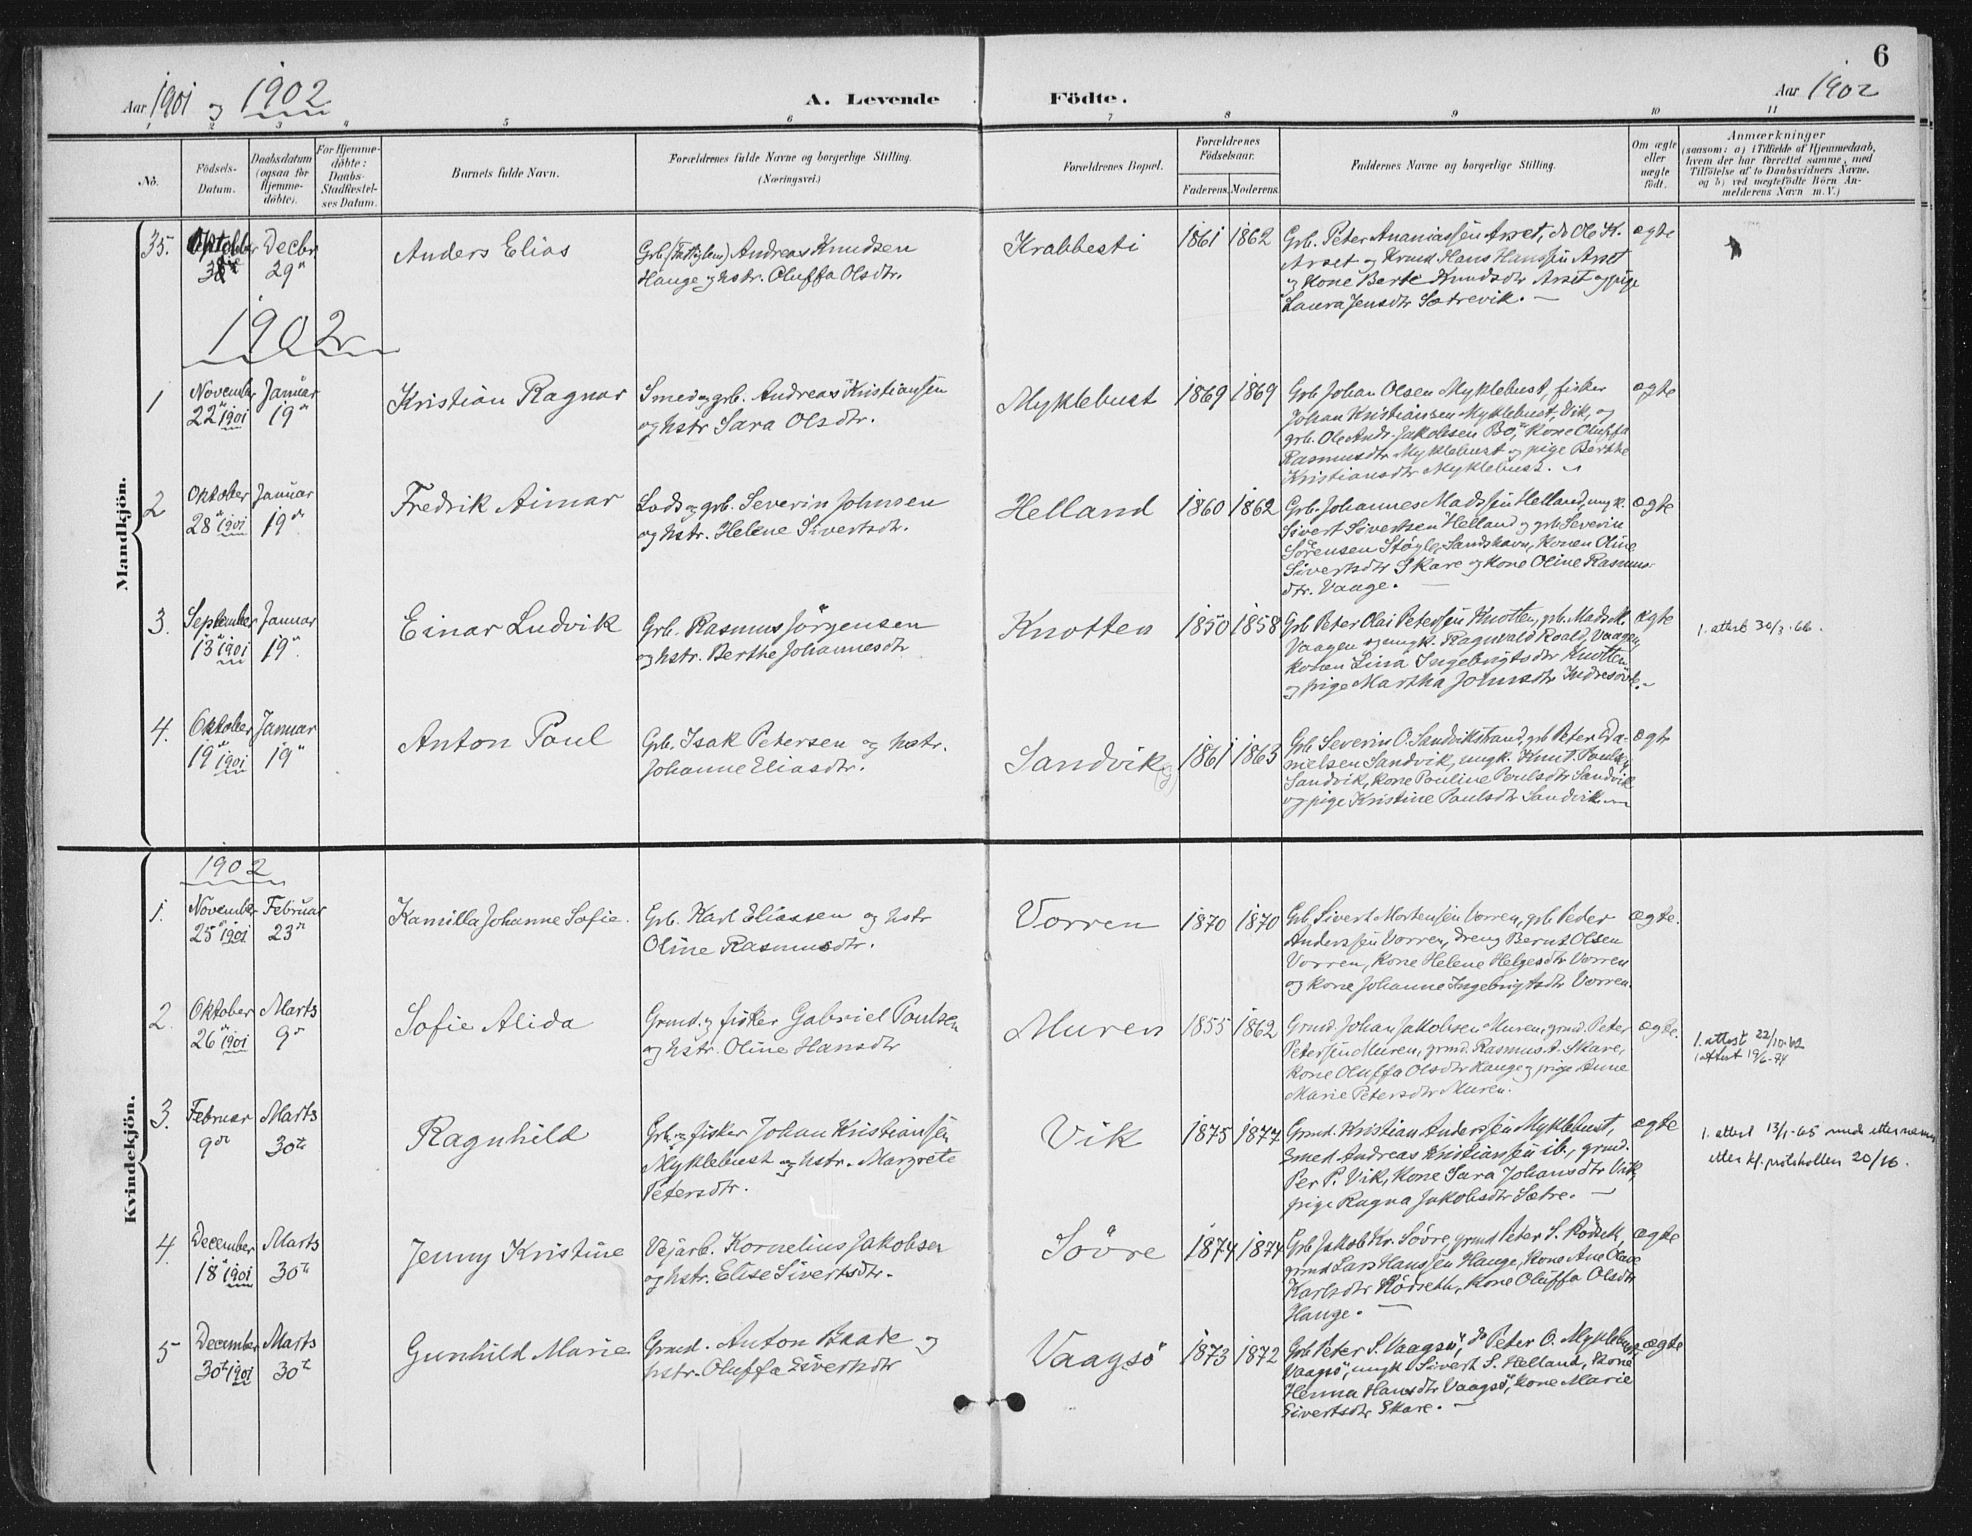 6
Aar 1901 og 1902
A. Levende
Födte.
Aar 1902
1 2 3 4 5 6 7 8 9 10 11
No.
Födsels-
Datum.
Daabsdatum
(ogsaa for
Hjemme-
döbte).
For Hjemme-
döbte:
Daabs-
Stadfæstel-
ses Datum.
Barnets fulde Navn.
Forældrenes fulde Navne og borgerlige Stilling.
(Næringsvei.)
Forældrenes Bopæl.
Forældrenes
Födselsaar.
Faderens.
Moderens.
Faddernes Navne og borgerlige Stilling.
Om ægte
eller
uægte
födt.
Anmærkninger
(saasom: a) i Tilfælde af Hjemmedaab,
hvem der har forrettet samme, med
Tilföielse af to Daabsvidners Navne,
og b) ved uægtefödte Börn An-
melderens Navn m. V.)
Mandkjön.
35. Oktober Decbr
29de
Anders Elias
Andreas Knudsen
Hauge og hstr. Oluffa Olsdtr.
Krabbesti
1861 1862
Grb. Peter Ananiassen Arset, do Ole K.
Arset og Hans Hanssen Arset
og kone Berte Knudsdtr Arset og pige
Laura Jensdtr Sætrevik. –
ægte
1902
1 November Januar
22de 1901 19de
Kristian Ragnar
Smed og grb. Andreas Kristiansen
og hstr Sara Olsdtr.
Myklebust
1869 1869
Grb Johan Olsen Myklebust, fisker
Johan Kristiansen Myklebust, Vik, og
grb. Ole Andr. Jakobsen Bö, kone Oluffa
Rasmusdtr Myklebust og pige Berthe
Kristiansdtr Myklebust. –
ægte
2 Oktober Januar
28de 1901 19de
Fredrik Aimar
Lods og grb. Severin Johnsen
og hstr. Helene Sivertsdtr.
Helland
1860 1862
Grb. Johannes Madssen Helland, ungk.
Sivert Sivertsen Helland og grb Severin
Sörensen Sandshavn, konen Oline
Sivertsdtr Skare og kone Oline Rasmus-
dtr. Vaage. –
ægte
3. September Januar
13de 1901 19de
Einar Ludvik
Grb. Rasmus Jörgensen
og hstr. Berthe Johannesdtr
Knotten
1850 1858
Grb Peter Olai Peterssen Knotten, grb. Mads K.
Vaagen og ungk. Ragnvald Roald, Vaagen,
konen Lina Ingebrigtsdtr Knotten
og pige Martha Johnsdtr Indresövde. –
ægte
1. attest 30/3 - 66.
4. Oktober Januar
19de 1901 19de
Anton Paul
Grb. Isak Petersen og hstr.
Johanne Eliasdtr.
Sandvik
1861 1863
Grb Severin O. Sandvikstrand, grb Peter Da-
nielsen Sandvik, ungk. Knut Paulsen
Sandvik, kone Pauline Paulsdtr Sandvik
og pige Kristine Paulsdtr Sandvik. –
ægte
Kvindekjön.
1902
1. November Februar
25de 1901 23de
Kamilla Johanne Sofie.
Grb. Karl Eliassen og hstr
Oline Rasmusdtr.
Vorren
1870 1870
Grb Sivert Mortensen Vorren, grb Peder
Anderssen Vorren, dreng Bernt Olsen
Vorren, kone Helene Helgesdtr Vorren
og kone Johanne Ingebrigtsdtr Vorren.
ægte.
2. Oktober Marts
26de 1901 9de
Sofie Alida
Grmd. og fisker Gabriel Poulsen
og hstr. Oline Hansdtr
Muren
1855 1862
Grmd. Johan Jakobsen Muren, grmd. Peter
Peterssen Muren, grmd. Rasmus A. Skare,
kone Oluffa Olsdtr Hauge og pige Anne
Marie Petersdtr Muren.
ægte.
1. attest 22/10-62
1 attest 19/6-74
3. Februar Marts
9de 30te
Ragnhild
Grb. og fisker Johan Kristianssen
Myklebust og hstr. Margrete
Petersdtr.
Vik
1875 1877
Grmd. Kristian Anderssen Myklebust,
smed Andreas Kristiansen ib., grmd.
Per P. Vik, kone Sara Johansdtr Vik,
pige Ragna Jakobsdtr Sætre. –
ægte
1. attest 13/1-65 med etternamn
etter kl. protokollen 20/16.
4. December Marts
18de 1901 30te
Jenny Kristine
Vejarb. Kornelius Jakobsen
og hstr. Elise Sivertsdtr.
Sövre
1874 1874
Grb Jakob Kr. Sövre, grmd Peter S. Rödsek,
grmd Lars Hanssen Hauge, kone Ane Olave
Karlsdtr Rödseth, kone Oluffa Olsdtr
Hauge. –
ægte
5 December Marts
30te 1901 30te
Gunhild Marie
Grmd. Anton Baade og
hstr. Oluffa Sivertsdtr
Vaagsö
1873 1872
Grb Peter S. Vaagsö, do Peter O. Myklebust,
Vaagsö, ungk Sivert S. Helland, kone
Henna Hansdtr Vaagsö, kone Marie
Sivertsdtr Skare. –
ægte